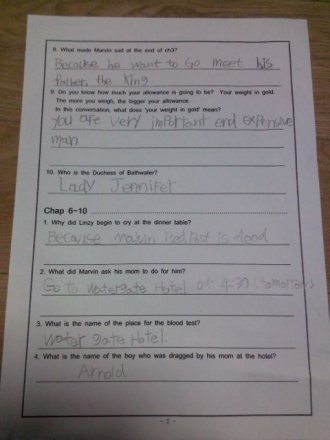 8. What made Marvin sad at the end of ch5?
Because he want to Go meet his
father, the King
9. Do you know how much your allowance is going to be? Your weight in gold.
The more you weigh, the bigger your allowance.
In this conversation, what does 'your weight in gold' mean?
You are very important and expensive
man
10. Who is the Duchess of Bathwater?
Lady Jennifer
Chap 6~10
1. Why did Linzy begin to cry at the dinner table?
Because is
2. What did Marvin ask his mom to do for him?
Go to Watergate Hotel at 4:30 (tomorrow)
3. What is the name of the place for the blood test?
Water gate Hotel.
4. What is the name of the boy who was dragged by his mom at the hotel?
Arnold
- 2 -